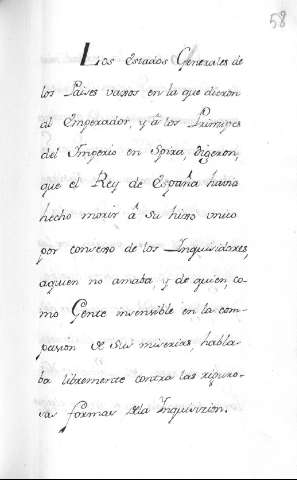 58
Los Estados Generales de
los Paises vaxos en la que dieron
al Emperador, y â los Principes
del Imperio en Spira, digeron,
que el Rey de España havia
hecho morir â su hixo unico
por consexo de los Inquisidores,
aquien no amaba y de quien, co-
mo Gente insensible en la com-
pasion de sus miserias, habla-
ba libremente contra las riguro-
sas formas dela Inquisicion.